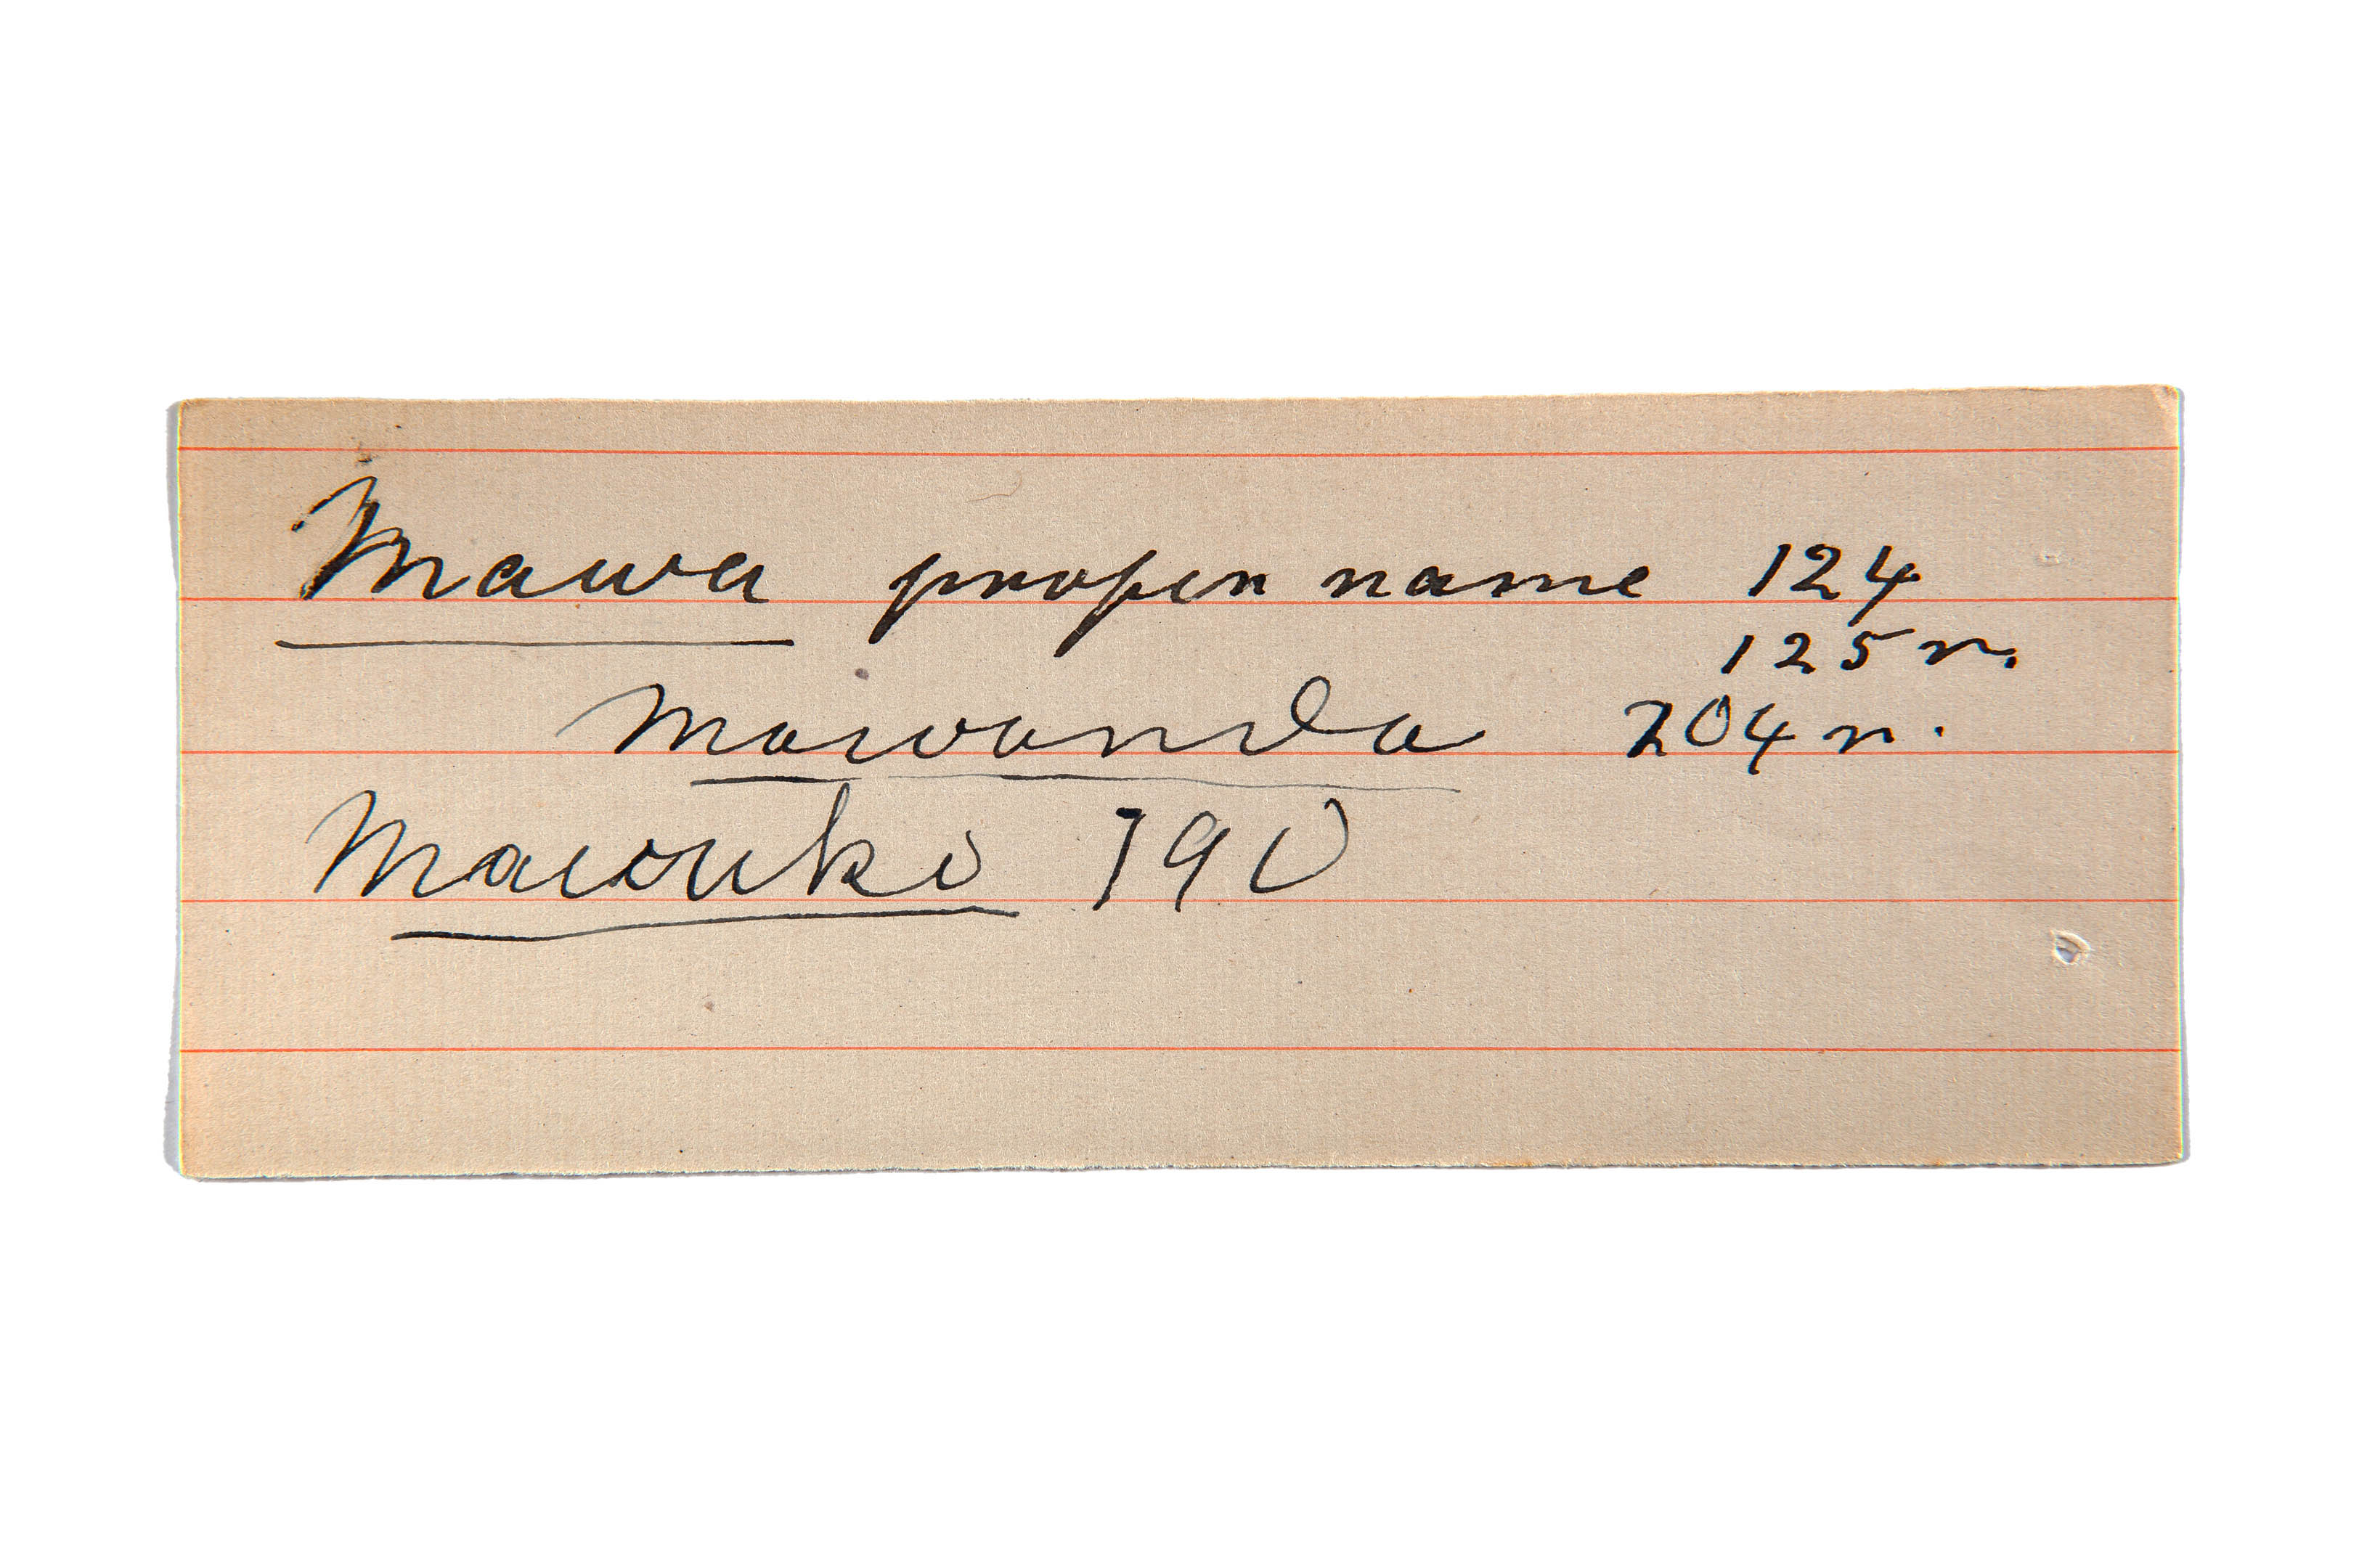 Mawa proper name 124
125 n.
Mawanda 204 n.
Mawuki 190